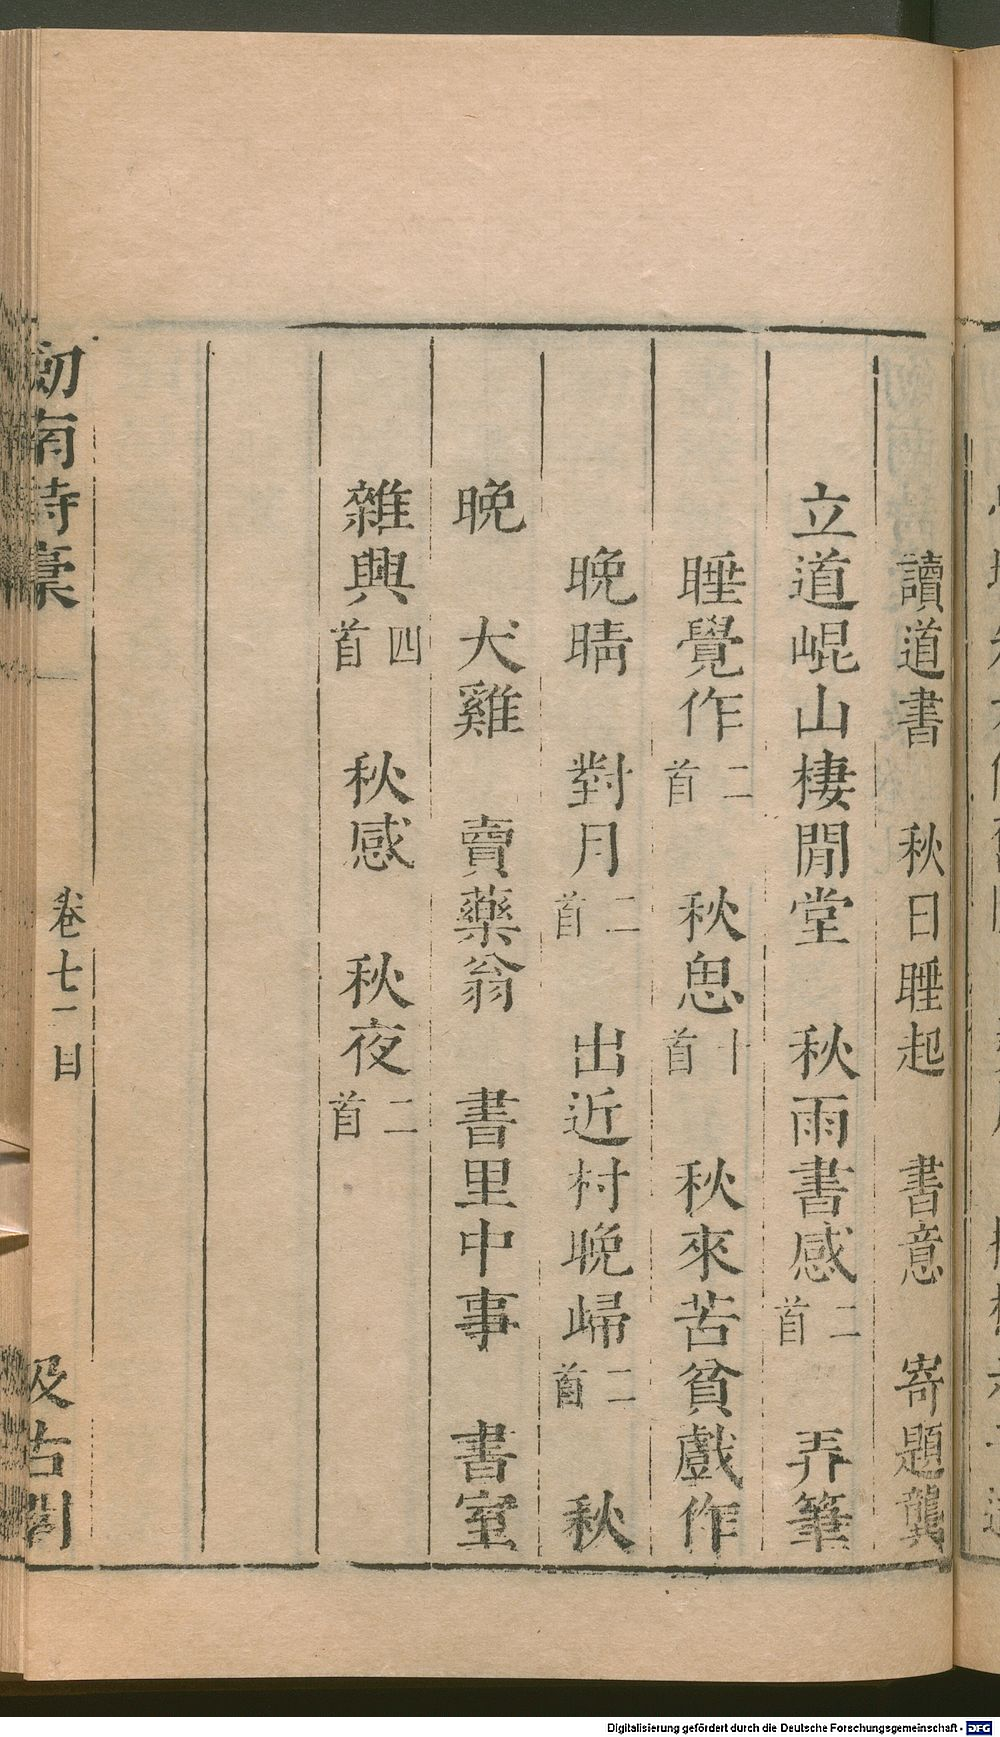 讀道書　秋日睡起　書意　寄題龔
立道崐山棲閒堂　秋雨書感二首　弄筆
睡覺作二首　秋思十首　秋來苦貧戲作
晚晴　對月二首　出近村晚歸二首　秋
晚　犬雞　賣藥翁　書里中事　書室
雜興四首　秋感　秋夜二首
劒南詩稾　卷七一目　汲古閣
Digitalisierung gefördert durch die Deutsche Forschungsgemeinschaft - DFG